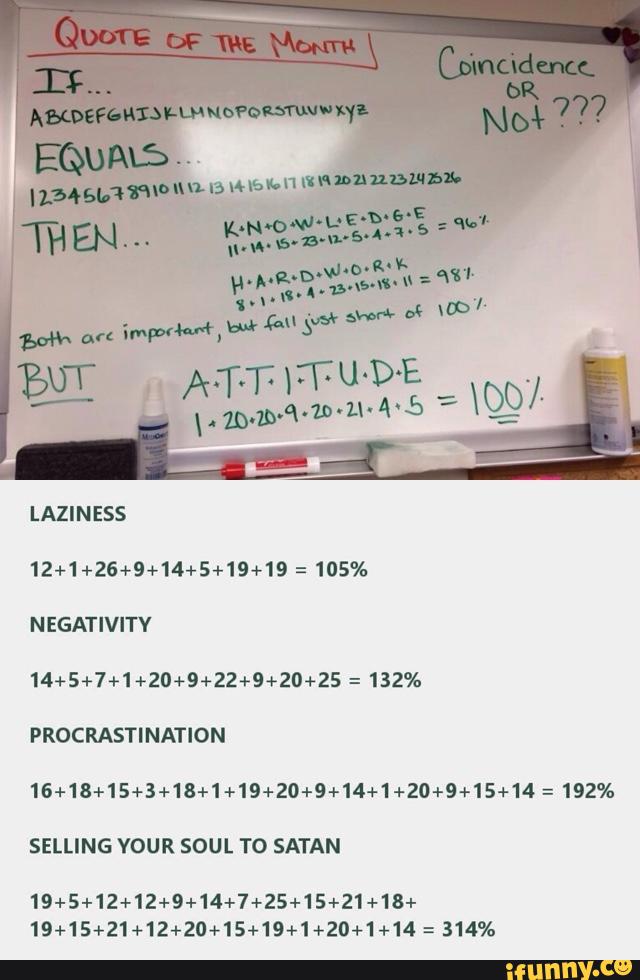 QUOTE OF THE MONTH
Coincidence
OR
Not ???
If...
ABCDEFGHIJKLMNOPQRSTUVWXYZ
EQUALS...
1 2 3 4 5 6 7 8 9 10 11 12 13 14 15 16 17 18 19 20 21 22 23 24 25 26
THEN...
K+N+O+W+L+E+D+G+E
11+14+15+23+12+5+4+7+5 = 96%
H+A+R+D+W+O+R+K
8+1+18+4+23+15+18+11 = 98%
Both are important, but fall just short of 100%
BUT
A+T+T+I+T+U+D+E
1+20+20+9+20+21+4+5 = 100%
LAZINESS
12+1+26+9+14+5+19+19 = 105%
NEGATIVITY
14+5+7+1+20+9+22+9+20+25 = 132%
PROCRASTINATION
16+18+15+3+18+1+19+20+9+14+1+20+9+15+14 = 192%
SELLING YOUR SOUL TO SATAN
19+5+12+12+9+14+7+25+15+21+18+
19+15+21+12+20+15+19+1+20+1+14 = 314%
ifunny.co